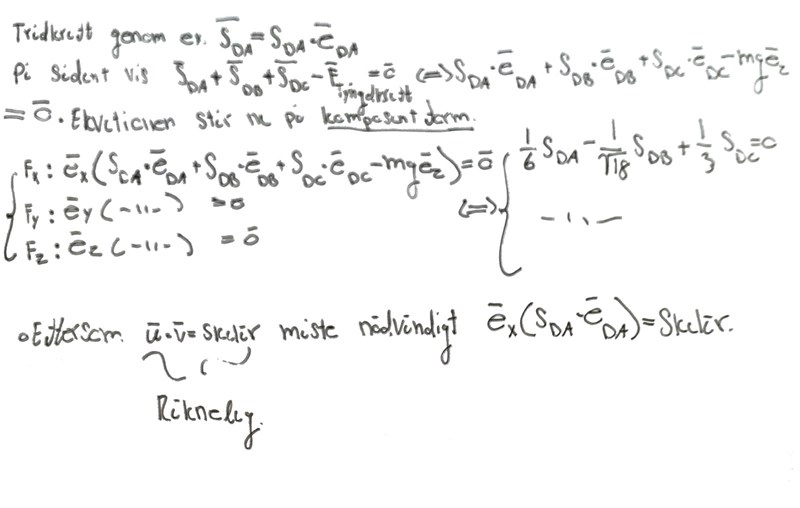 Trådkraft genom er. S̄_DA = S_DA·ē_DA
På sådant vis S̄_DA + S̄_DB + S̄_DC − F̄_tyngdkraft = ō ⟺ S_DA·ē_DA + S_DB·ē_DB + S_DC·ē_DC − mgē_z
= ō. Ekvationen står nu på komposant form.
F_x : ē_x(S_DA·ē_DA + S_DB·ē_DB + S_DC·ē_DC − mgē_z) = ō ⟺ 1/6 S_DA − 1/√18 S_DB + 1/3 S_DC = 0
F_y : ē_y(-"-) = ō -"-
F_z : ē_z(-"-) = ō
• Eftersom ū·v̄ = skalär måste nödvändigt ē_x(S_DA·ē_DA) = Skalär.
Räknelag.